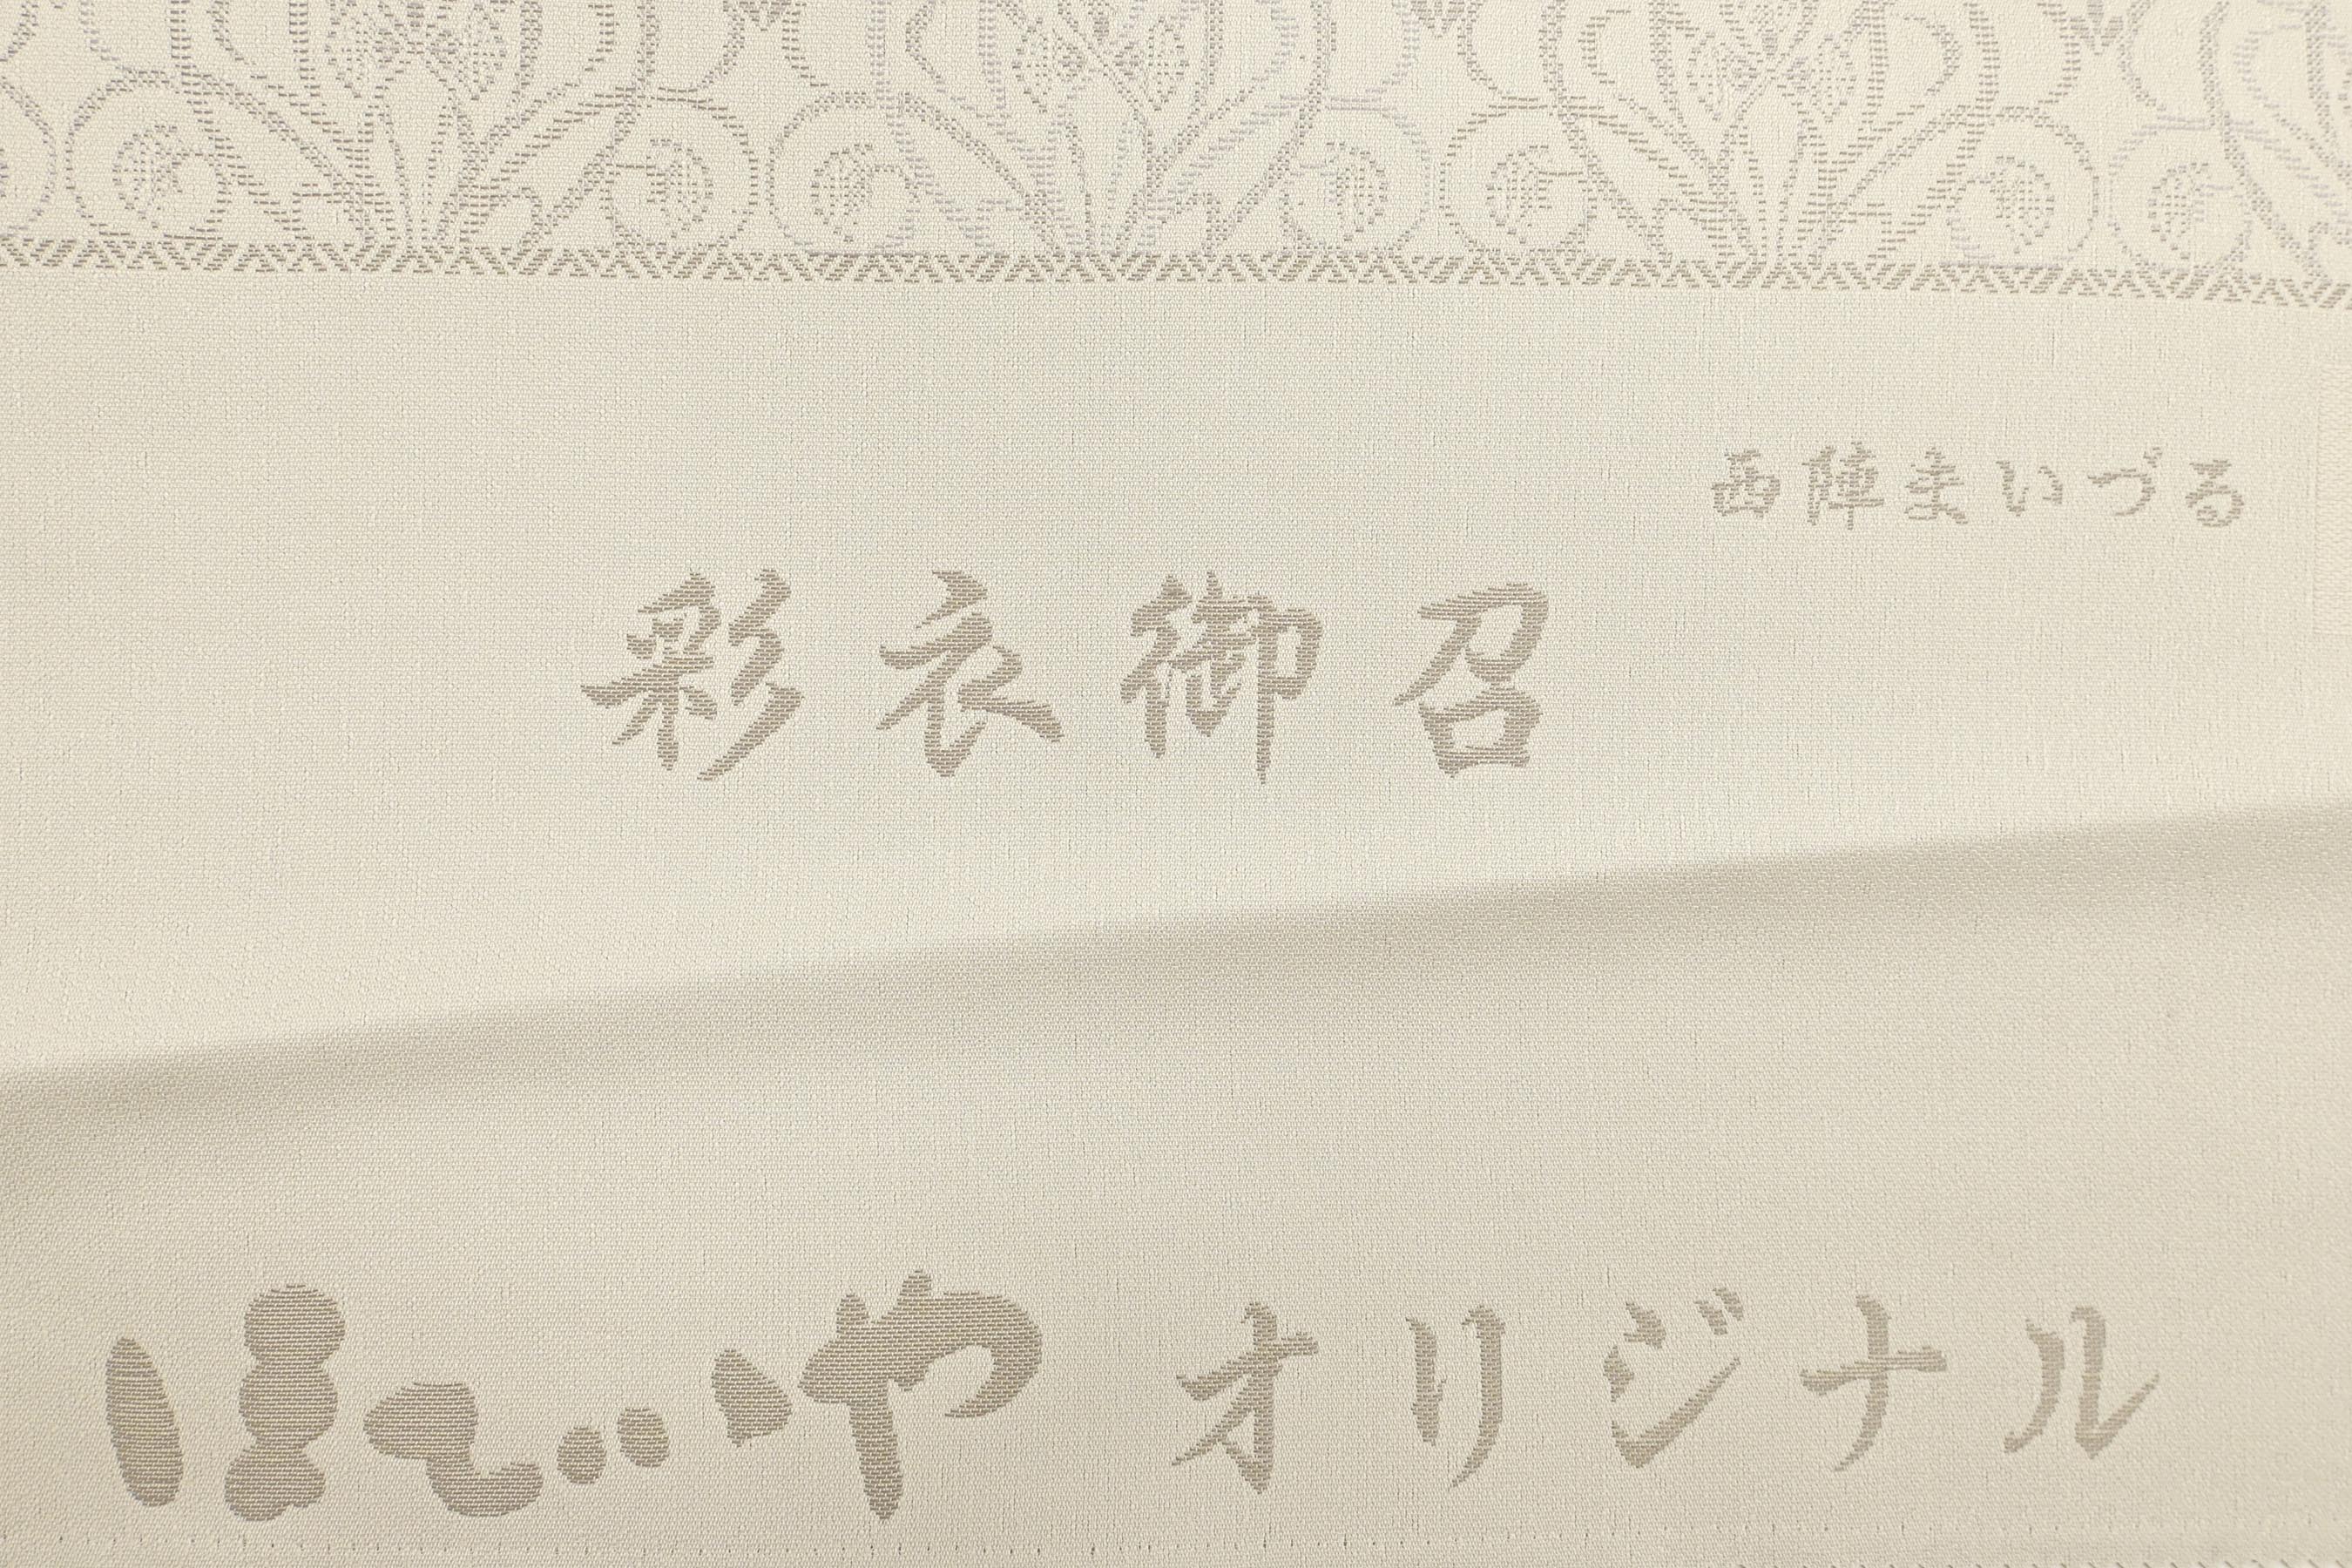 西陣まいづる
彩衣御召
ほていや オリジナル